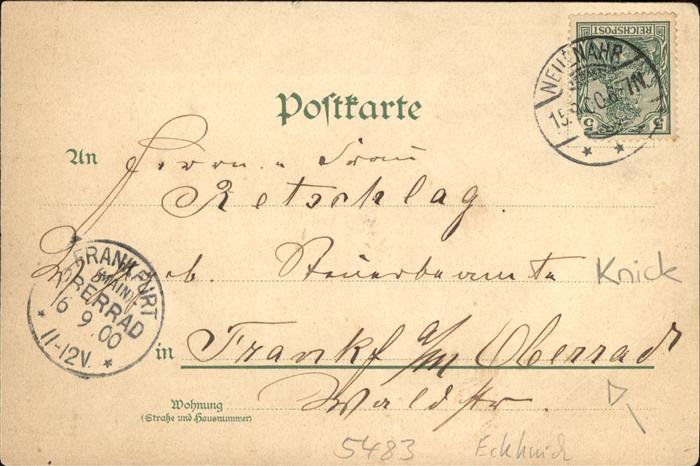 REICHSPOST
5 5
NEUENAHR
15.9.00.6-7N.
Postkarte
An Herrn u Frau
Retschlag.
Steuerbeamte
Knick
FRANKFURT
(MAIN)
OBERRAD
16 9.00
11-12V.
in Frankf a/M Oberrad
Wohnung
(Straße und Hausnummer)
Waldstr.
5483 Eckknick